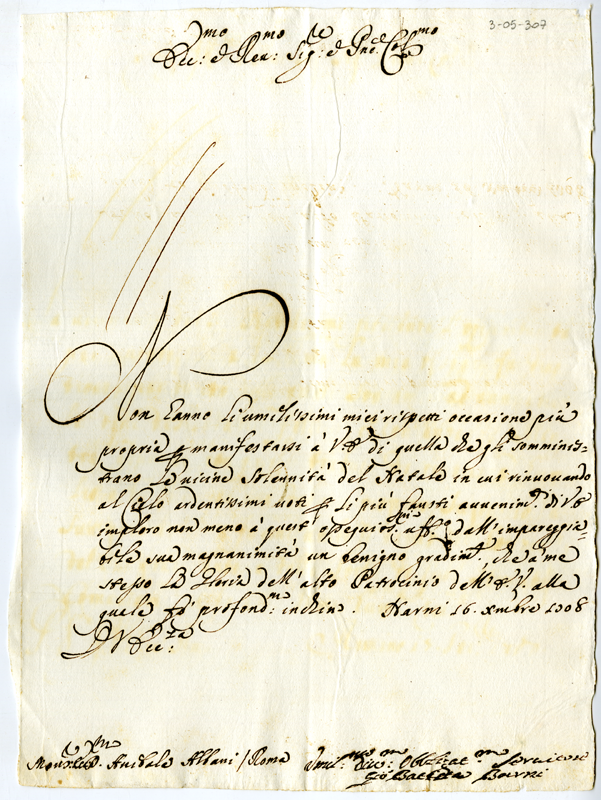 3-05-307
Ecc:mo e Rev:mo Sig:re e Pne Col:mo
Non hanno li umilissimi miei rispetti occasione più
propria p manifestarsi à V.E. di quella che gli somminis=
trano le vicine solennità del Natale in cui rinuovando
al Cielo ardentissimi voti p li più fausti avvenim.ti di V.E.
imploro non meno à quest' ossequios.mi uff. dall' impareggia=
bile sua magnanimità un benigno gradim.to, che à me
stesso la gloria dell' alto Patrocinio dell' E.V. alla
quale fò profond.mo inchino. Narni 16. Xmbre 1708
D V Ecc:za
Annibale Albani / Roma
Umil:mo Obligat:mo Servitore
Gio Battista